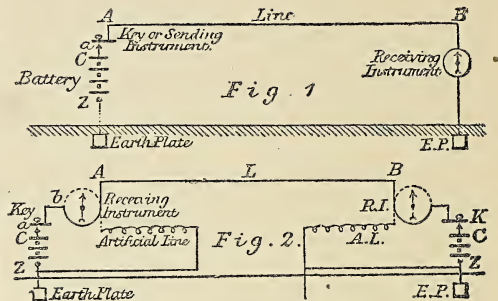 A Line B
a Key or Sending
Instrument.
C
Battery
Z
Receiving
Instrument
Fig. 1
Earth Plate E.P.
A L B
b Receiving
Instrument
R.I.
Key K
a
C C
Artificial Line Fig. 2. A.L.
Z Z
Earth Plate E.P.